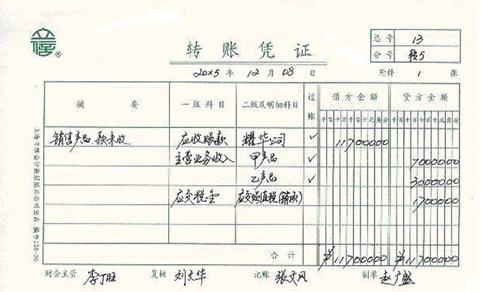 立信
总号 13
分号 转5
转账凭证
20×5年 12月 08日 附件 1 张
摘要 一级科目 二级及明细科目 过账 借方金额 贷方金额
千百十万千百十元角分 千百十万千百十元角分
销售产品,款未收 应收账款 耀华公司 ✓ 11700000
主营业务收入 甲产品 ✓ 7000000
乙产品 ✓ 3000000
应交税金 应交增值税(销项) 1700000
合计 ¥11700000 ¥11700000
财会主管 李丁旺 复核 刘大华 记账 张文凤 制单 赵广盛